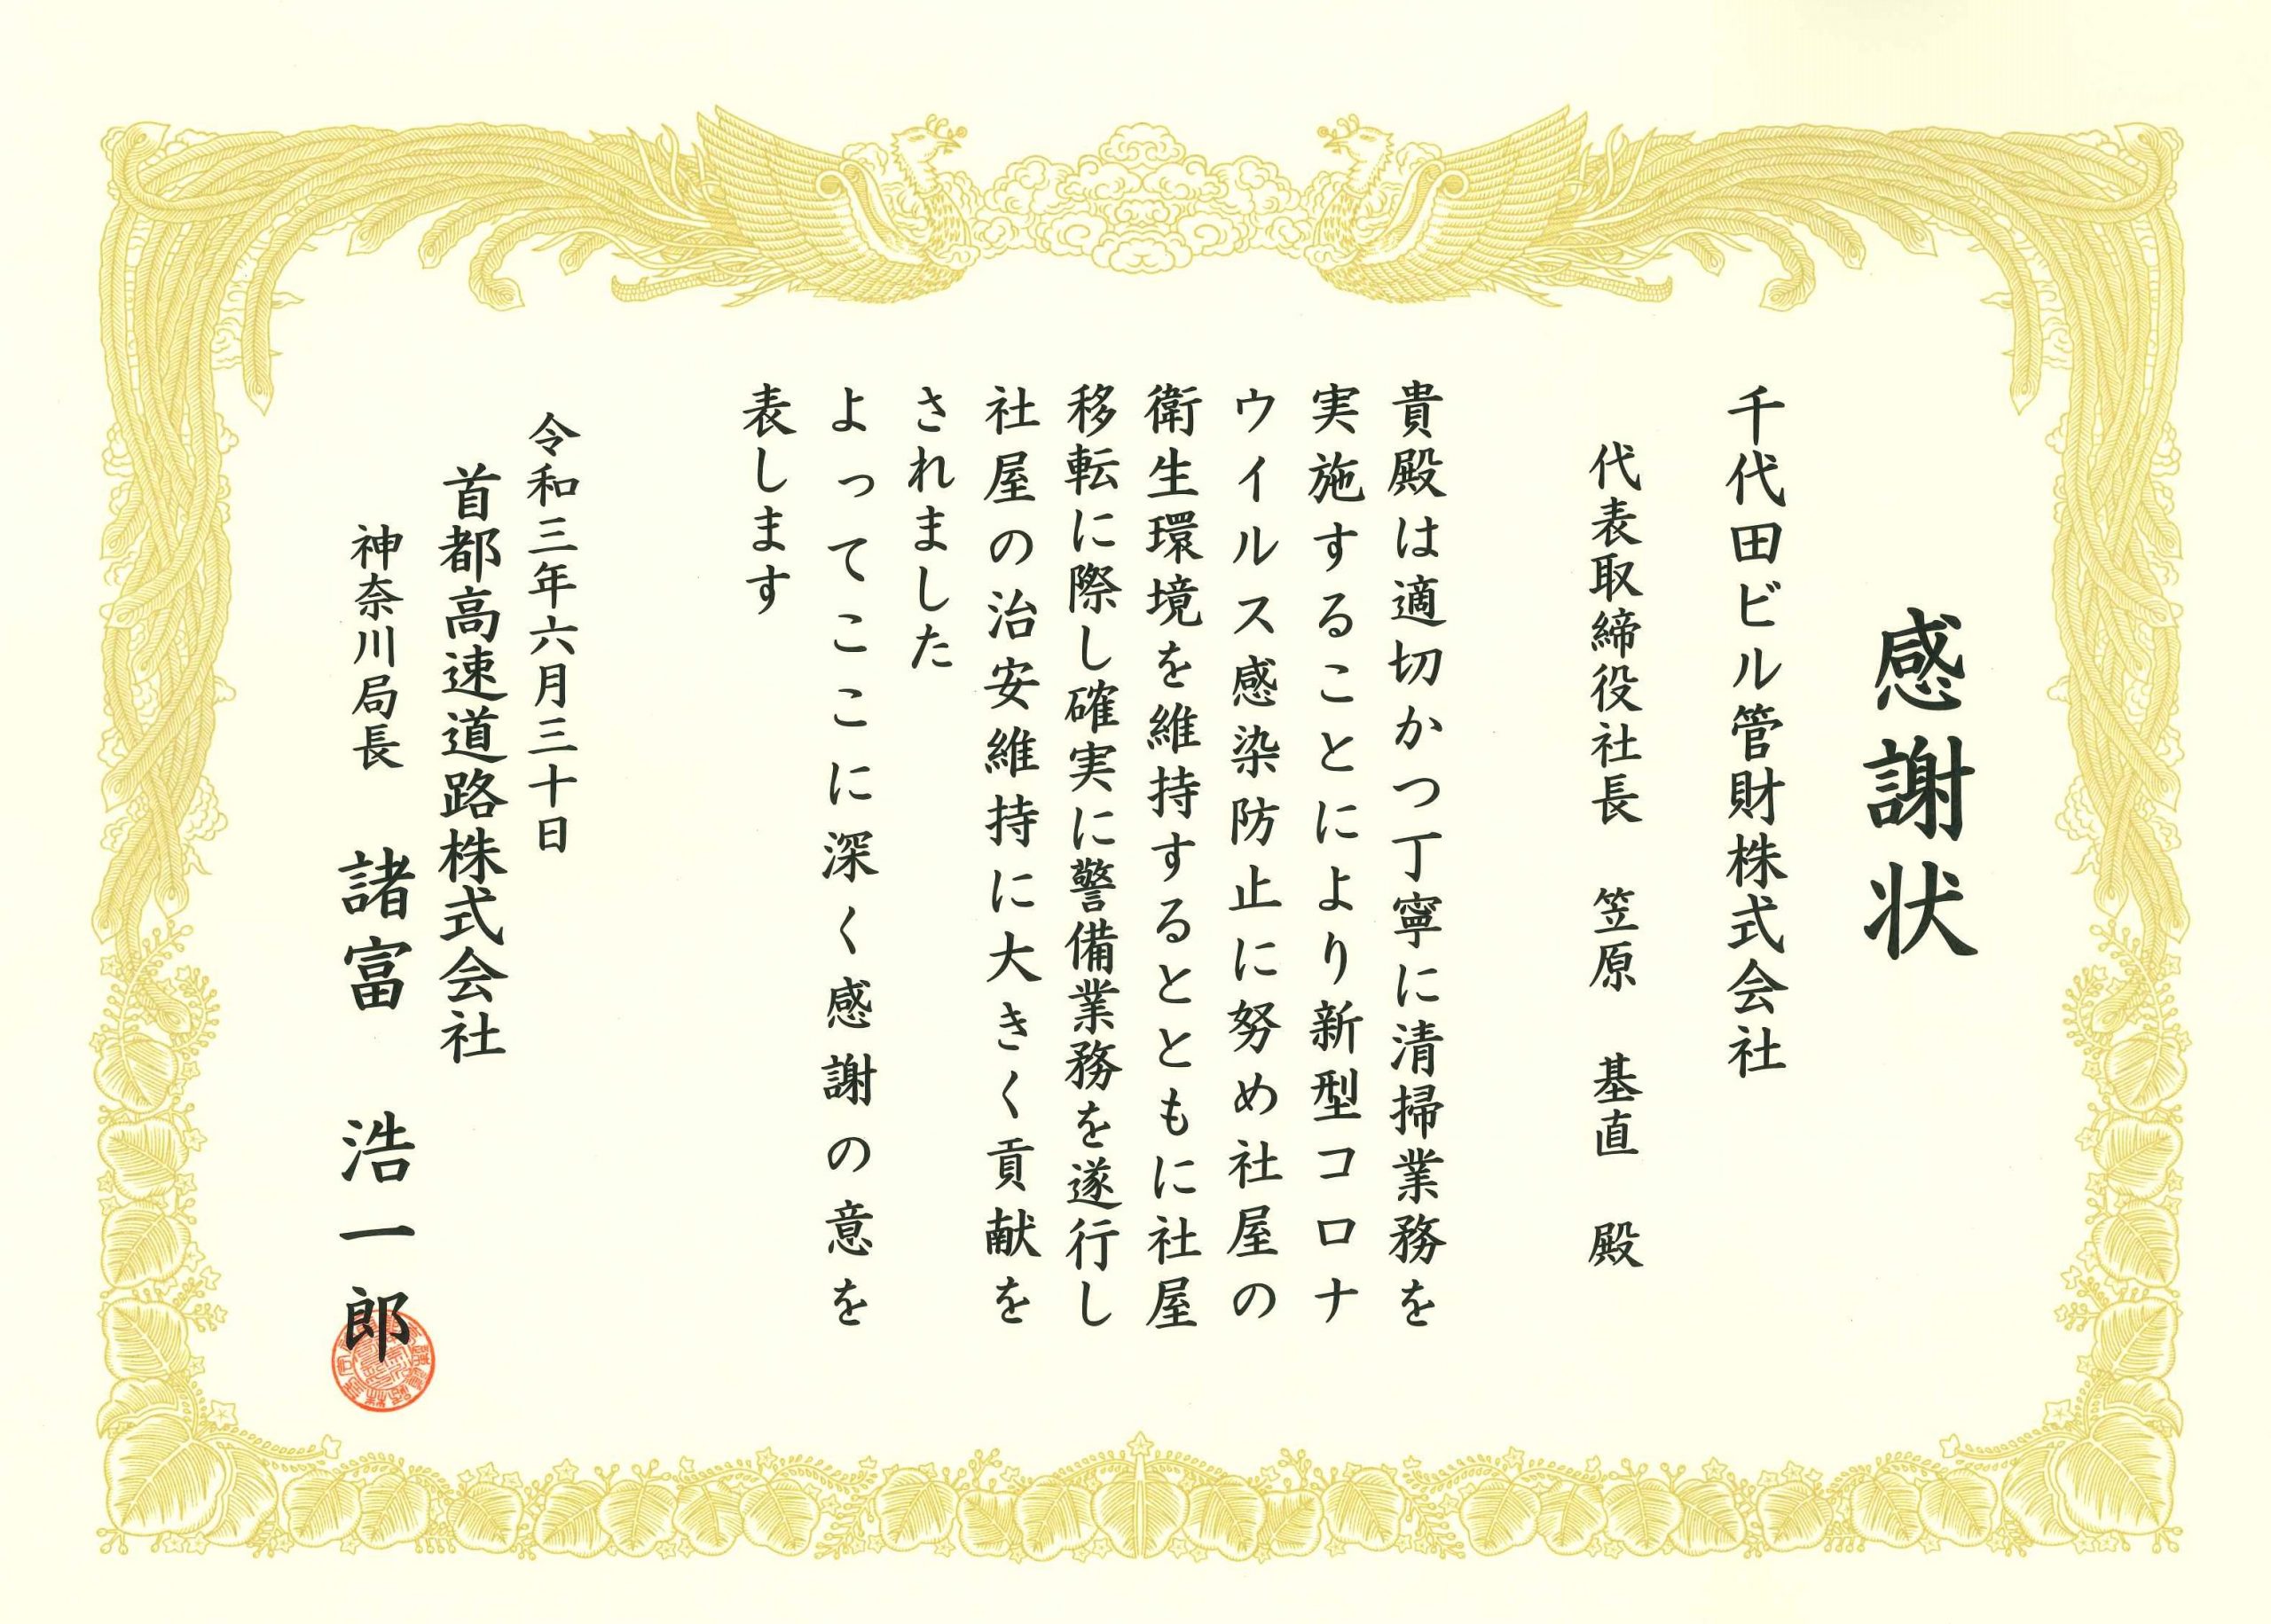 感謝状
千代田ビル管財株式会社
代表取締役社長 笠原 基直 殿
貴殿は適切かつ丁寧に清掃業務を
実施することにより新型コロナ
ウイルス感染防止に努め社屋の
衛生環境を維持するとともに社屋
移転に際し確実に警備業務を遂行し
社屋の治安維持に大きく貢献を
されました
よってここに深く感謝の意を
表します
令和三年六月三十日
首都高速道路株式会社
神奈川局長 諸富 浩一郎